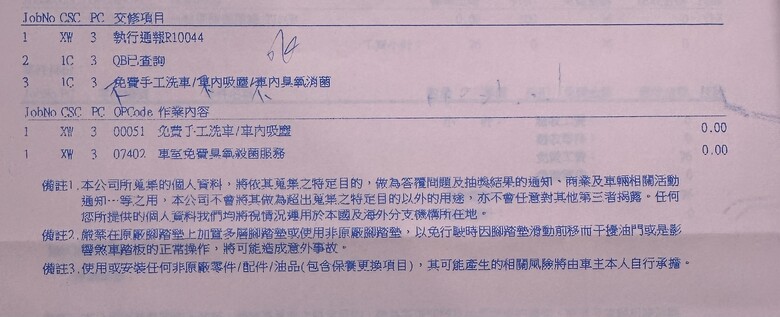 JobNo CSC PC 交修項目
1 XW 3 執行通報R10044
2 1C 3 QB已查詢
3 1C 3 免費手工洗車/車內吸塵/車內臭氧消菌
JobNo CSC PC OPCode 作業內容
1 XW 3 00051 免費手工洗車/車內吸塵 0.00
1 XW 3 07402 車室免費臭氧殺菌服務 0.00
備註1.本公司所蒐集的個人資料，將依其蒐集之特定目的，做為答覆問題及抽獎結果的通知、商業及車輛相關活動
通知…等之用，本公司不會將其做為超出蒐集之特定目的以外的用途，亦不會任意對其他第三者揭露。任何
您所提供的個人資料我們均將視情況運用於本國及海外分支機構所在地。
備註2.嚴禁在原廠腳踏墊上加置多層腳踏墊或使用非原廠腳踏墊，以免行駛時因腳踏墊滑動前移而干擾油門或是影
響煞車踏板的正常操作，將可能造成意外事故。
備註3.使用或安裝任何非原廠零件/配件/油品(包含保養更換項目)，其可能產生的相關風險將由車主本人自行承擔。